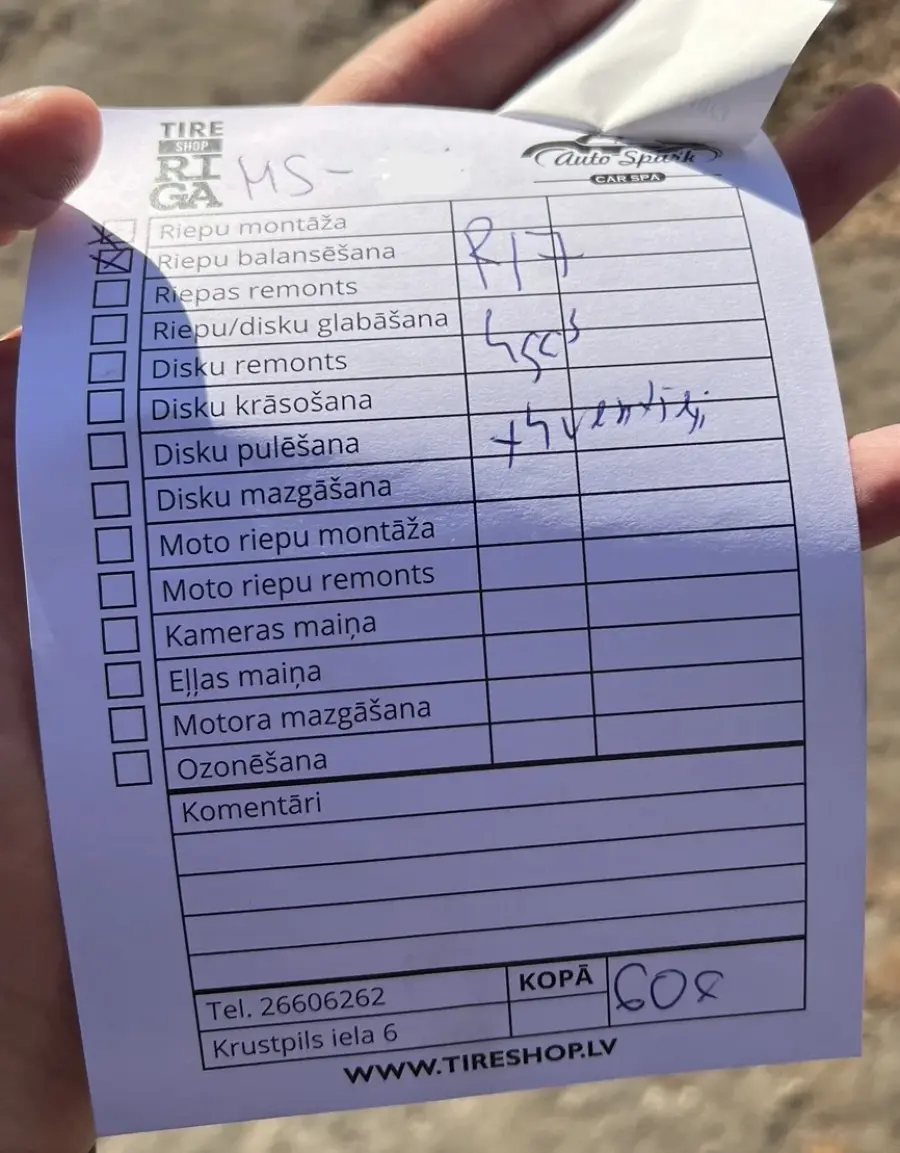 TIRE
SHOP
RI
GA
MS-
Auto Spark
CAR SPA
Riepu montāža
Riepu balansēšana R17
Riepas remonts
Riepu/disku glabāšana
Disku remonts
Disku krāsošana
Disku pulēšana +4 ventiļi
Disku mazgāšana
Moto riepu montāža
Moto riepu remonts
Kameras maiņa
Eļļas maiņa
Motora mazgāšana
Ozonēšana
Komentāri
Tel. 26606262 KOPĀ 60
Krustpils iela 6
WWW.TIRESHOP.LV